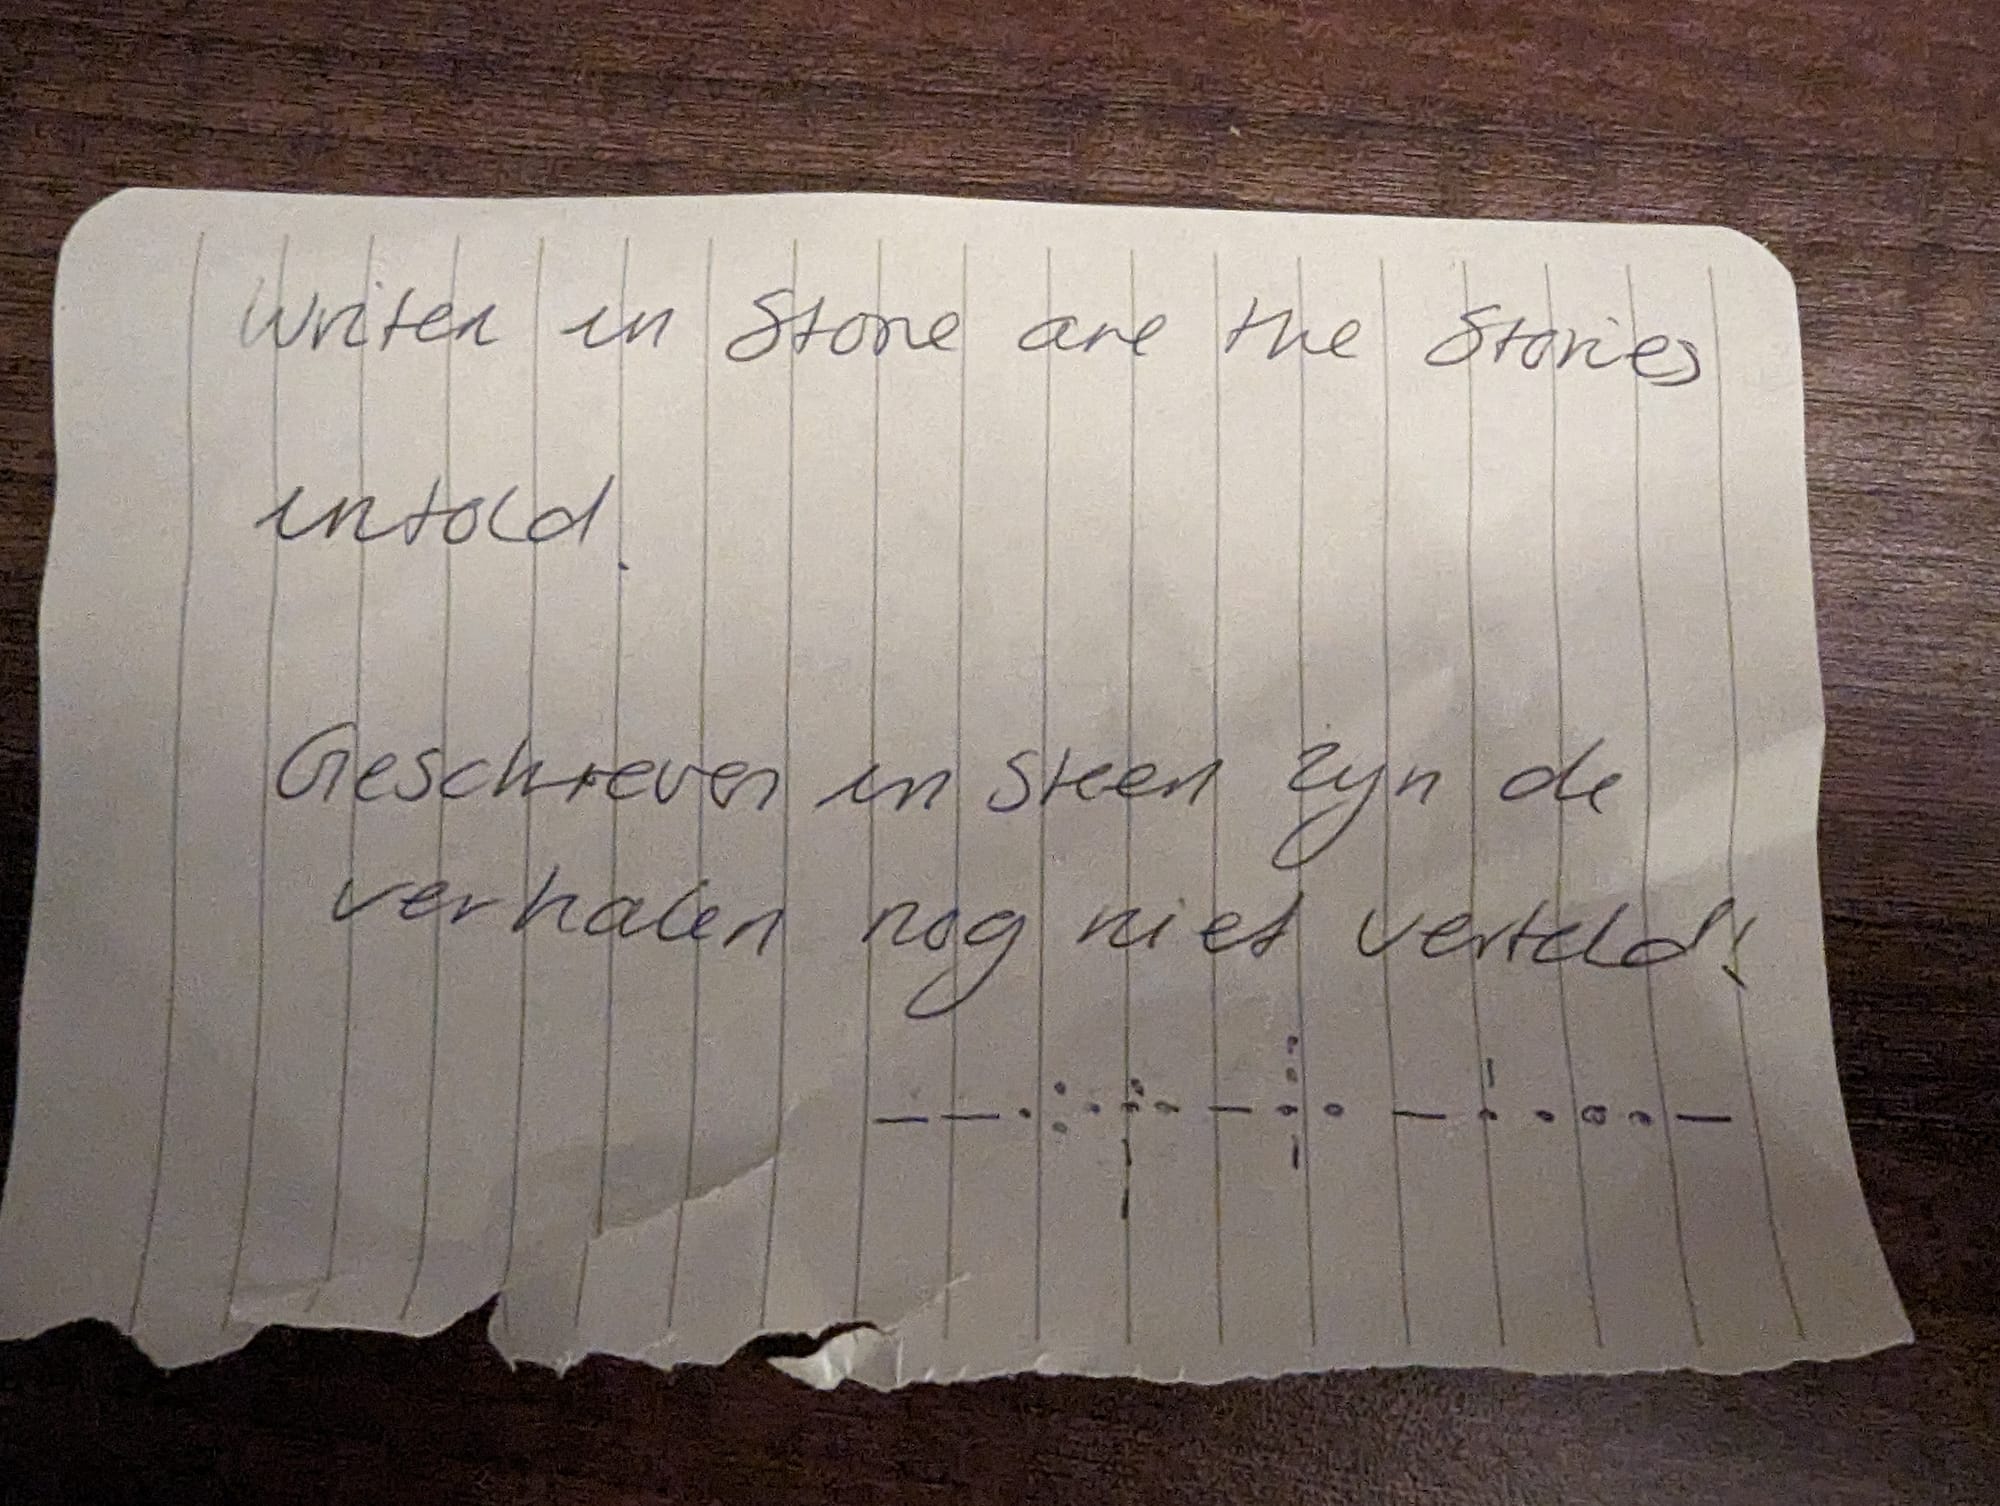 Writen in Stone are the Stories
untold.
Geschreven in steen zyn de
verhalen nog niet verteld!